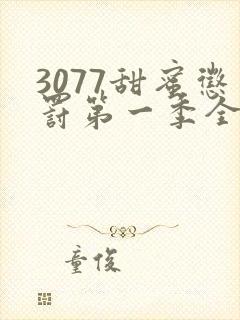 3077甜蜜惩
罚第一季全
童俊